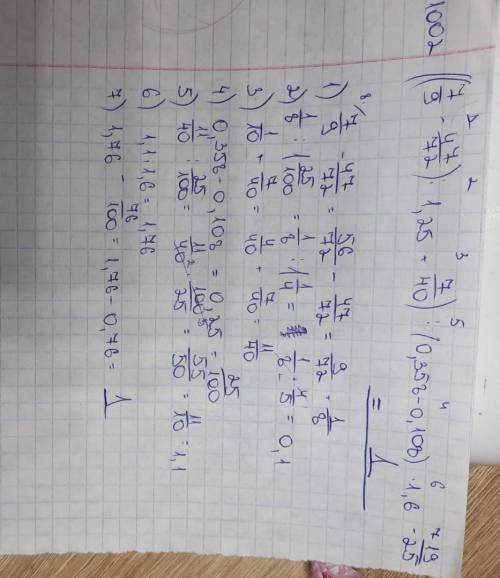 1002 ((7/9 - 47/72) : 1,25 + 7/40) : (0,358 - 0,108) · 1,6 - 19/25 = 1
1) 7/9 - 47/72 = 56/72 - 47/72 = 9/72 = 1/8
2) 1/8 : 1 25/100 = 1/8 : 1 1/4 = 1/8 · 4/5 = 0,1
3) 1/10 + 7/40 = 4/40 + 7/40 = 11/40
4) 0,358 - 0,108 = 0,25 = 25/100
5) 11/40 : 25/100 = 11/40 · 100/25 = 55/50 = 11/10 = 1,1
6) 1,1 · 1,6 = 1,76
7) 1,76 - 76/100 = 1,76 - 0,76 = 1